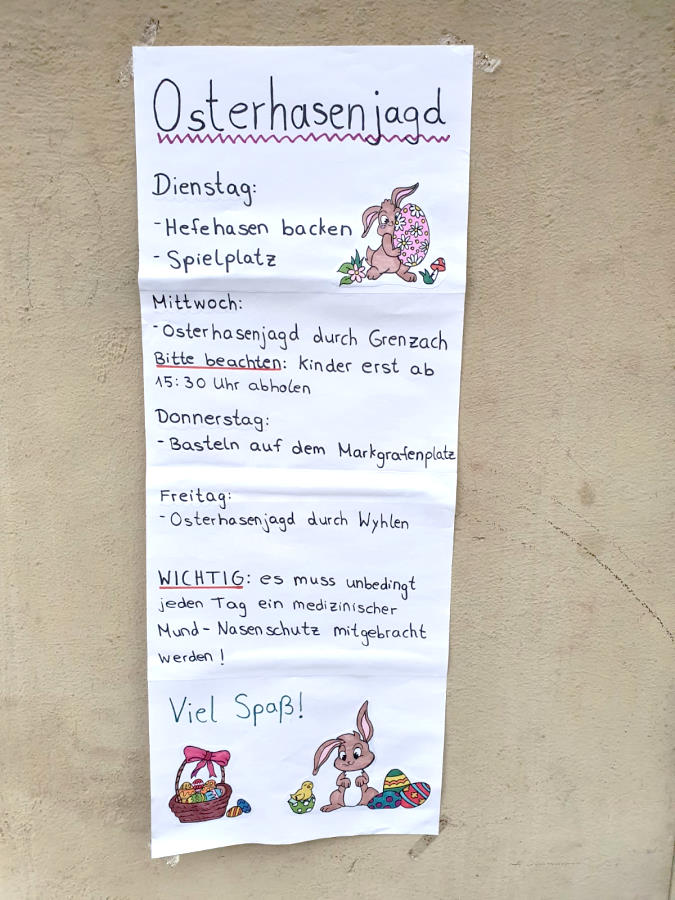 Osterhasenjagd
Dienstag:
- Hefehasen backen
- Spielplatz
Mittwoch:
- Osterhasenjagd durch Grenzach
Bitte beachten: Kinder erst ab
15:30 Uhr abholen
Donnerstag:
- Basteln auf dem Markgrafenplatz
Freitag:
- Osterhasenjagd durch Wyhlen
WICHTIG: es muss unbedingt
jeden Tag ein medizinischer
Mund-Nasenschutz mitgebracht
werden!
Viel Spaß!